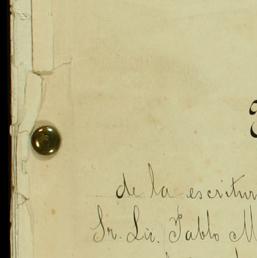 de la escritur
Sr. Lic. Pablo M